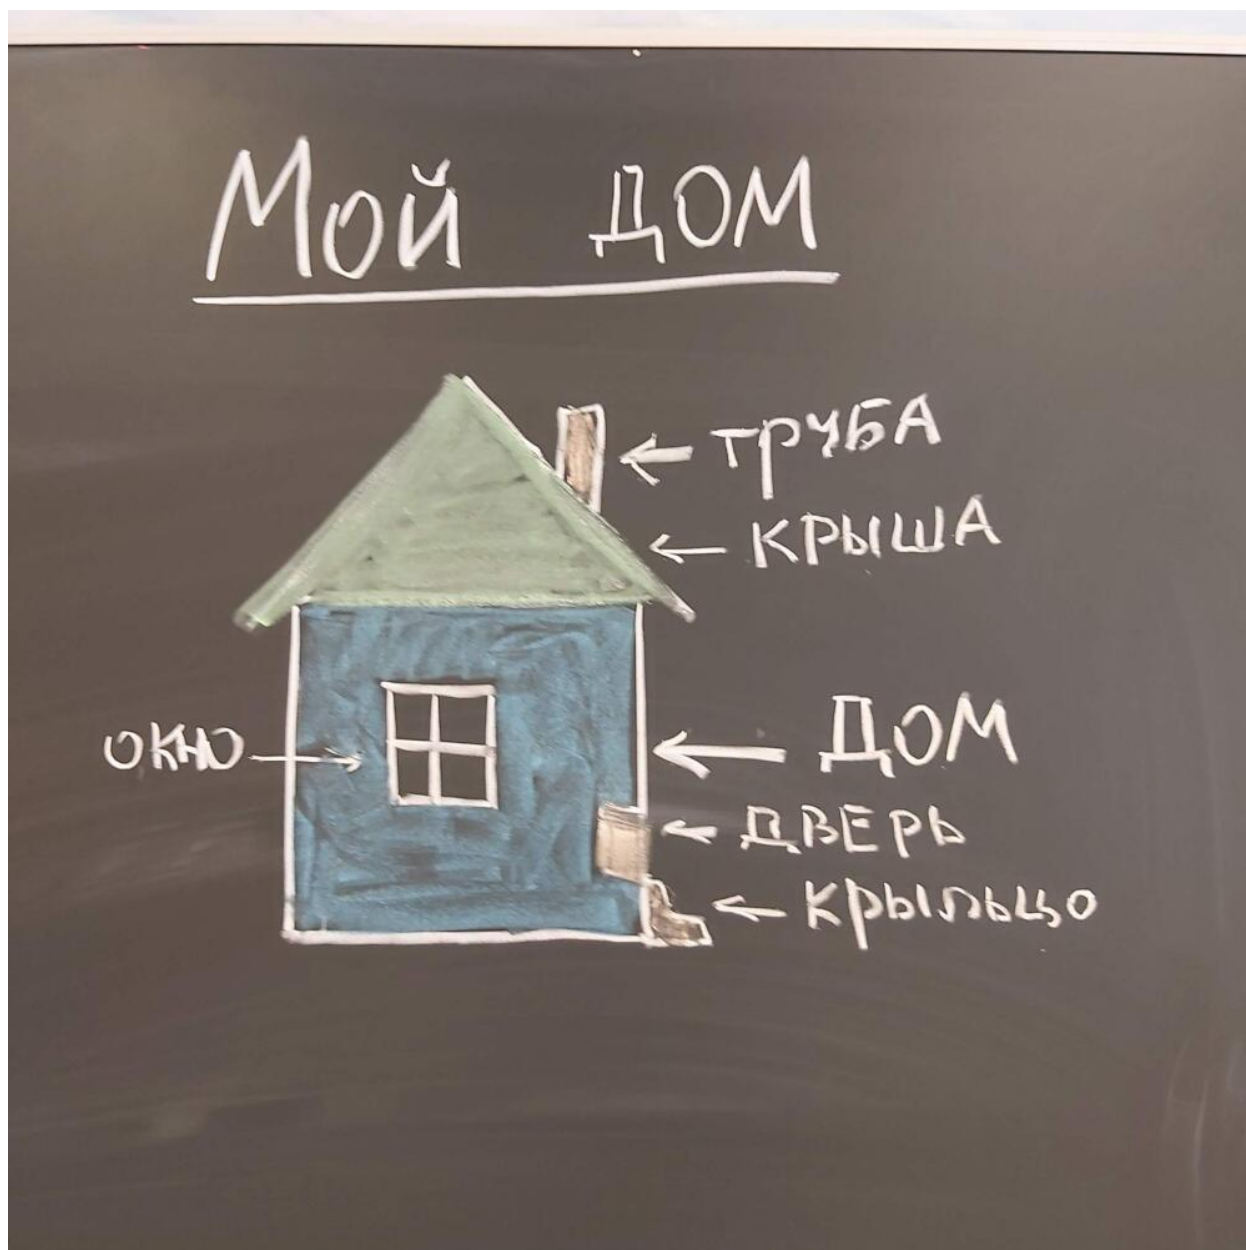 Мой дом
труба
крыша
окно
Дом
дверь
крыльцо